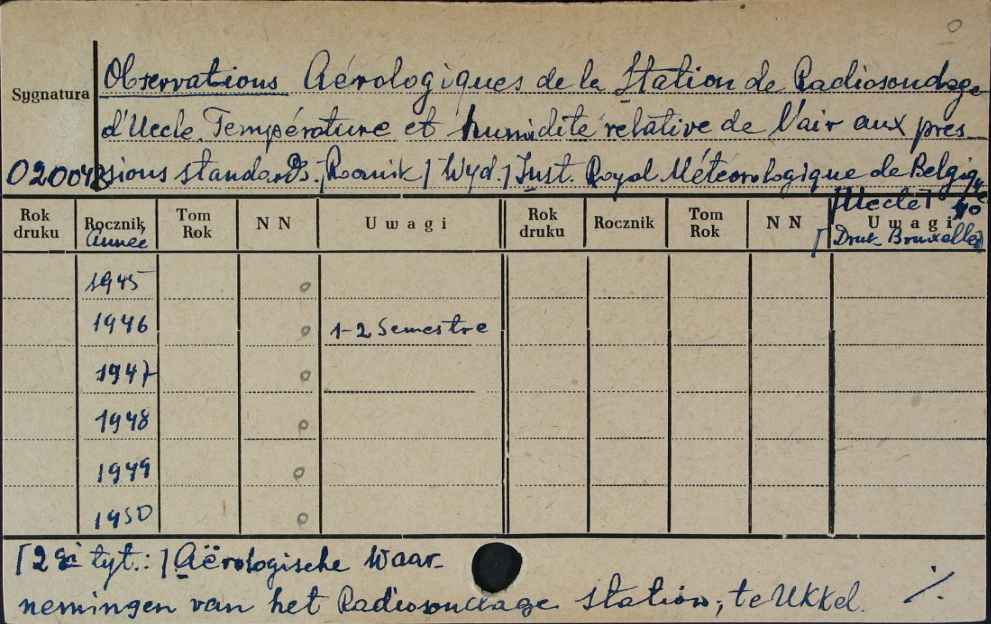 Observations Aérologiques de la Station de Radiosondage
Sygnatura
d'Uccle. Température et humidité relative de l'air aux pres-
02004
sions standards. [Rocznik] [Wyd.] Inst. Royal Météorologique de Belgique
[Uccle] 40
Rok druku Rocznik Tom Rok NN Uwagi Rok druku Rocznik Tom Rok NN Uwagi
Année
[Druk Bruxelles]
1945 o
1946 o 1-2 Semestre
1947 o
1948 o
1949 o
1950 o
[2 gi tyt.:] Aërologische Waar-
nemingen van het Radiosondage station, te Ukkel. ./.